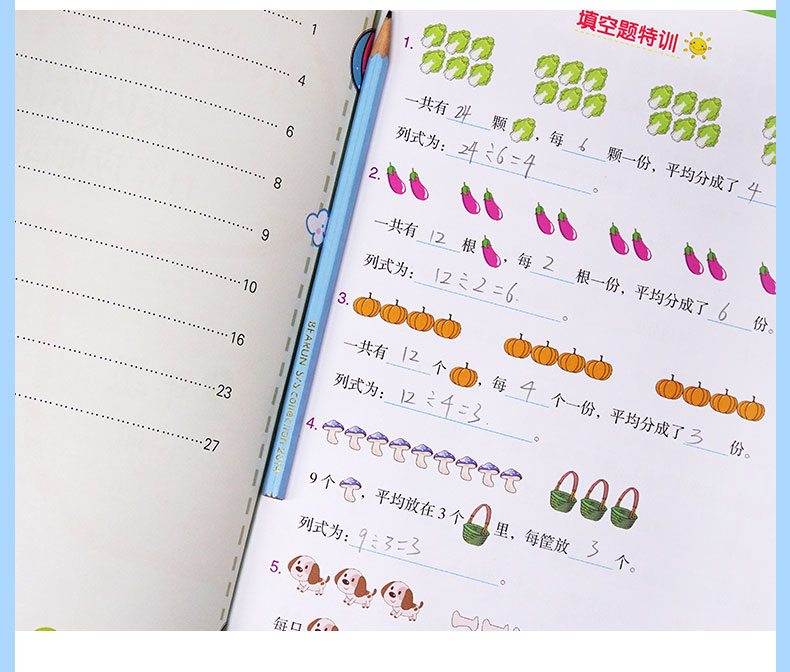 1
4
6
8
9
10
16
23
27
填空题特训
1.
一共有 24 颗 , 每 6 颗一份，平均分成了 4
列式为： 24÷6=4 。
2.
一共有 12 根 , 每 2 根一份，平均分成了 6 份。
列式为： 12÷2=6 。
3.
一共有 12 个 , 每 4 个一份，平均分成了 3 份。
列式为： 12÷4=3 。
4.
9个 ，平均放在3个 里，每筐放 3 个。
列式为： 9÷3=3 。
5.
每只